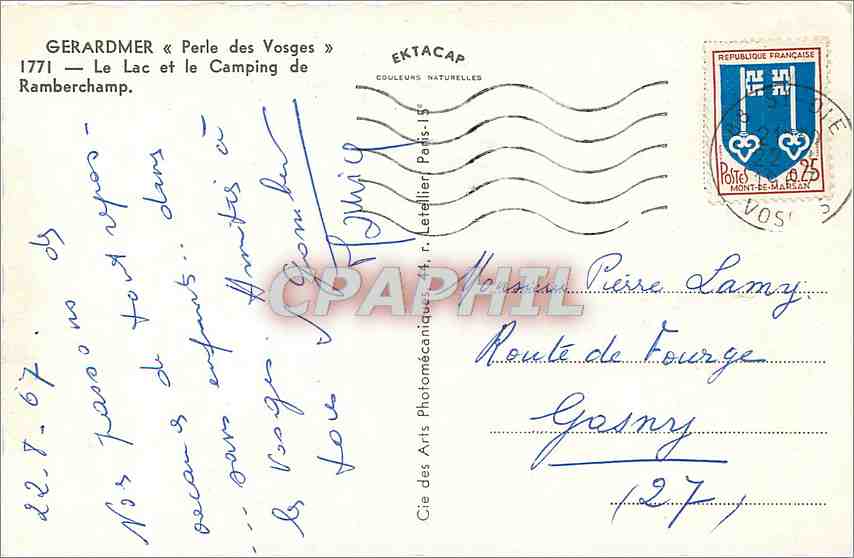 GERARDMER « Perle des Vosges »
1771 — Le Lac et le Camping de
Ramberchamp.
EKTACAP
COULEURS NATURELLES
REPUBLIQUE FRANÇAISE
POSTES 0,25
MONT-DE-MARSAN
ST-DIE
VOSGES
Cie des Arts Photomécaniques, 44, r. Letellier, Paris-15e
22.8.67.
Nos passons des
de tout repos -
dans
... sans enfants..
les Vosges. Amitiés à
tous
CPAPHIL
Monsieur Pierre Lamy
Route de Fourge
Gasny
(27)